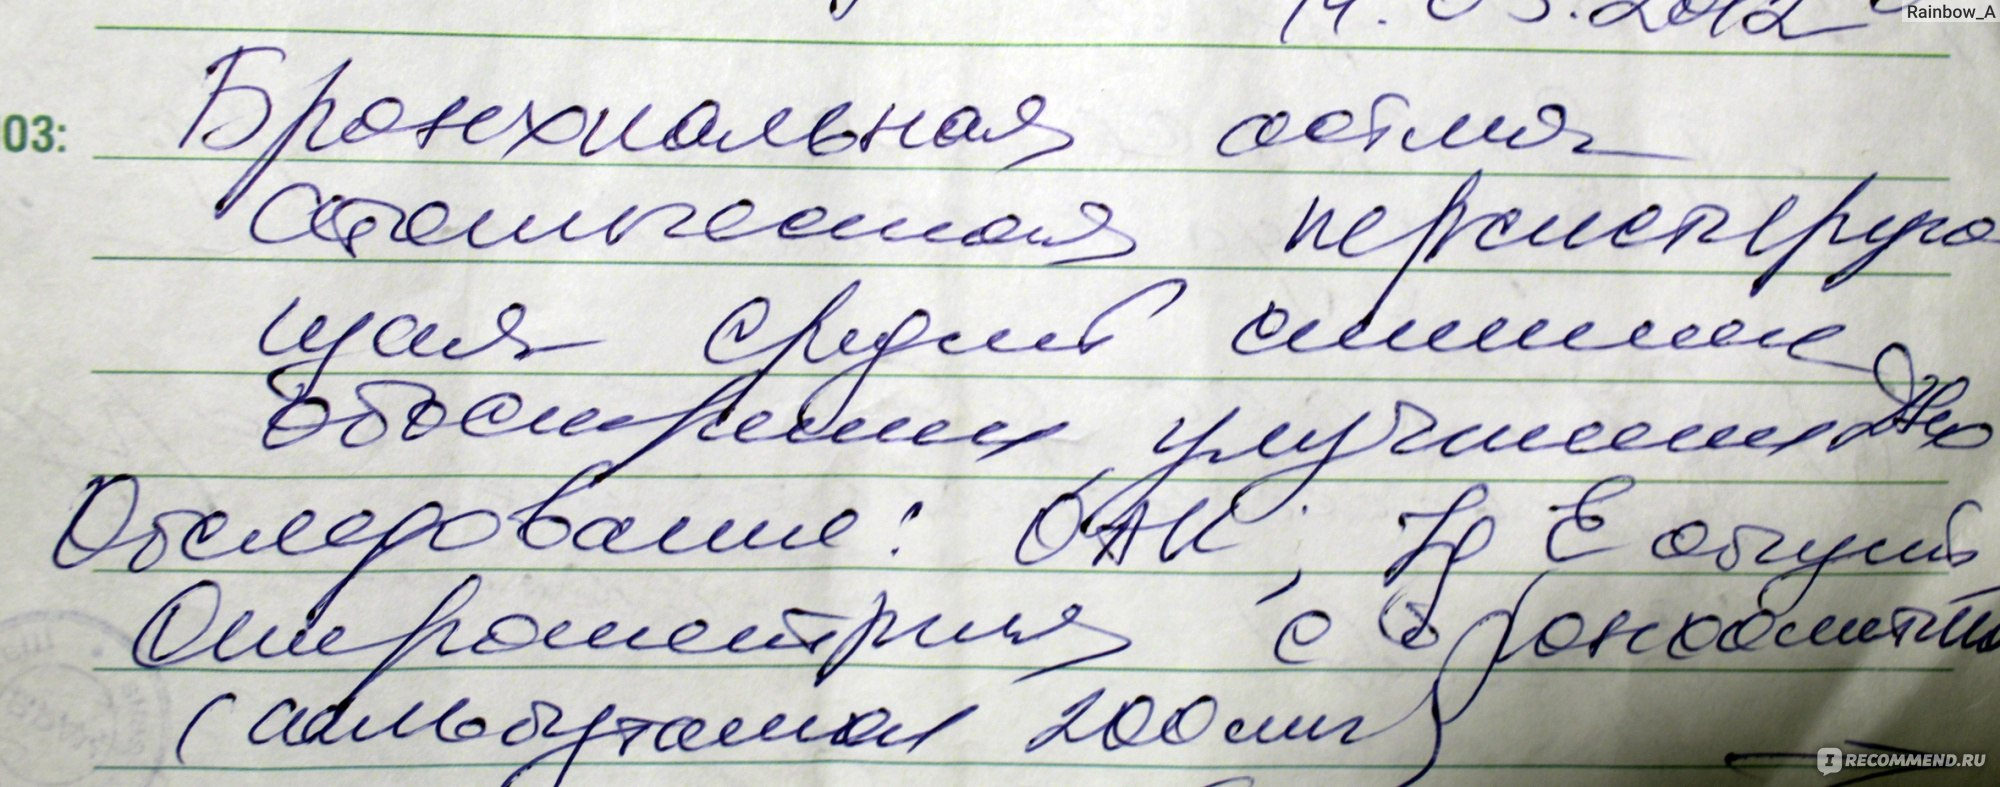 14.03.2012
Rainbow_A
оз: Бронхиальная астма
атопическая персистирую
щая средней
обострения, улучшения
Обследование: ОАК, Ig E общий
Спирометрия с бронхолит
(сальбутамол 200 мкг)
IRECOMMEND.RU